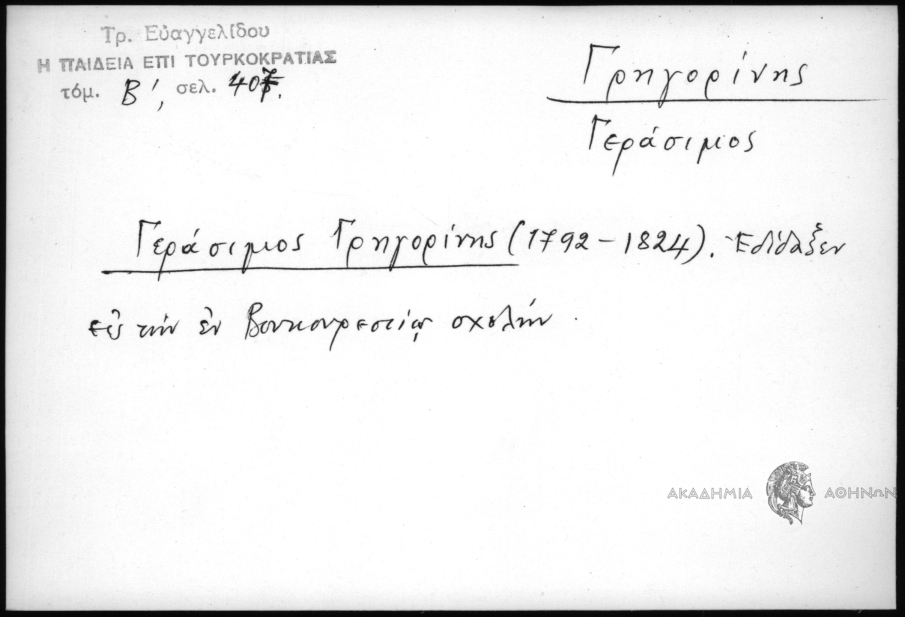 Τρ. Εὐαγγελίδου
Η ΠΑΙΔΕΙΑ ΕΠΙ ΤΟΥΡΚΟΚΡΑΤΙΑΣ
τόμ. Β', σελ. 407.
Γρηγορίνης
Γεράσιμος
Γεράσιμος Γρηγορίνης (1792-1824). Ἐδίδαξεν
εἰς τὴν ἐν Βουκουρεστίῳ σχολήν.
ΑΚΑΔΗΜΙΑ ΑΘΗΝΩΝ